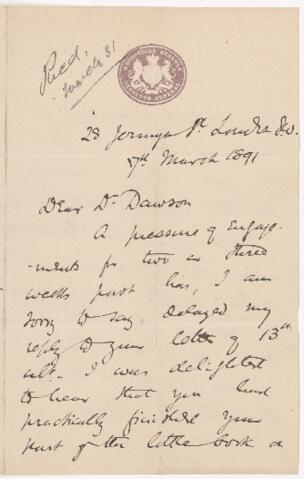 Recd.
March 31
GEOLOGICAL SURVEY
28 Jermyn St. London S.W.
7th March 1891
Dear Dr Dawson
A pressure of engage-
-ments for two or three
weeks past has, I am
sorry to say, delayed my
reply to your letter of 13th
ult. I was delighted
to hear that you had
practically finished your
part of the little book on